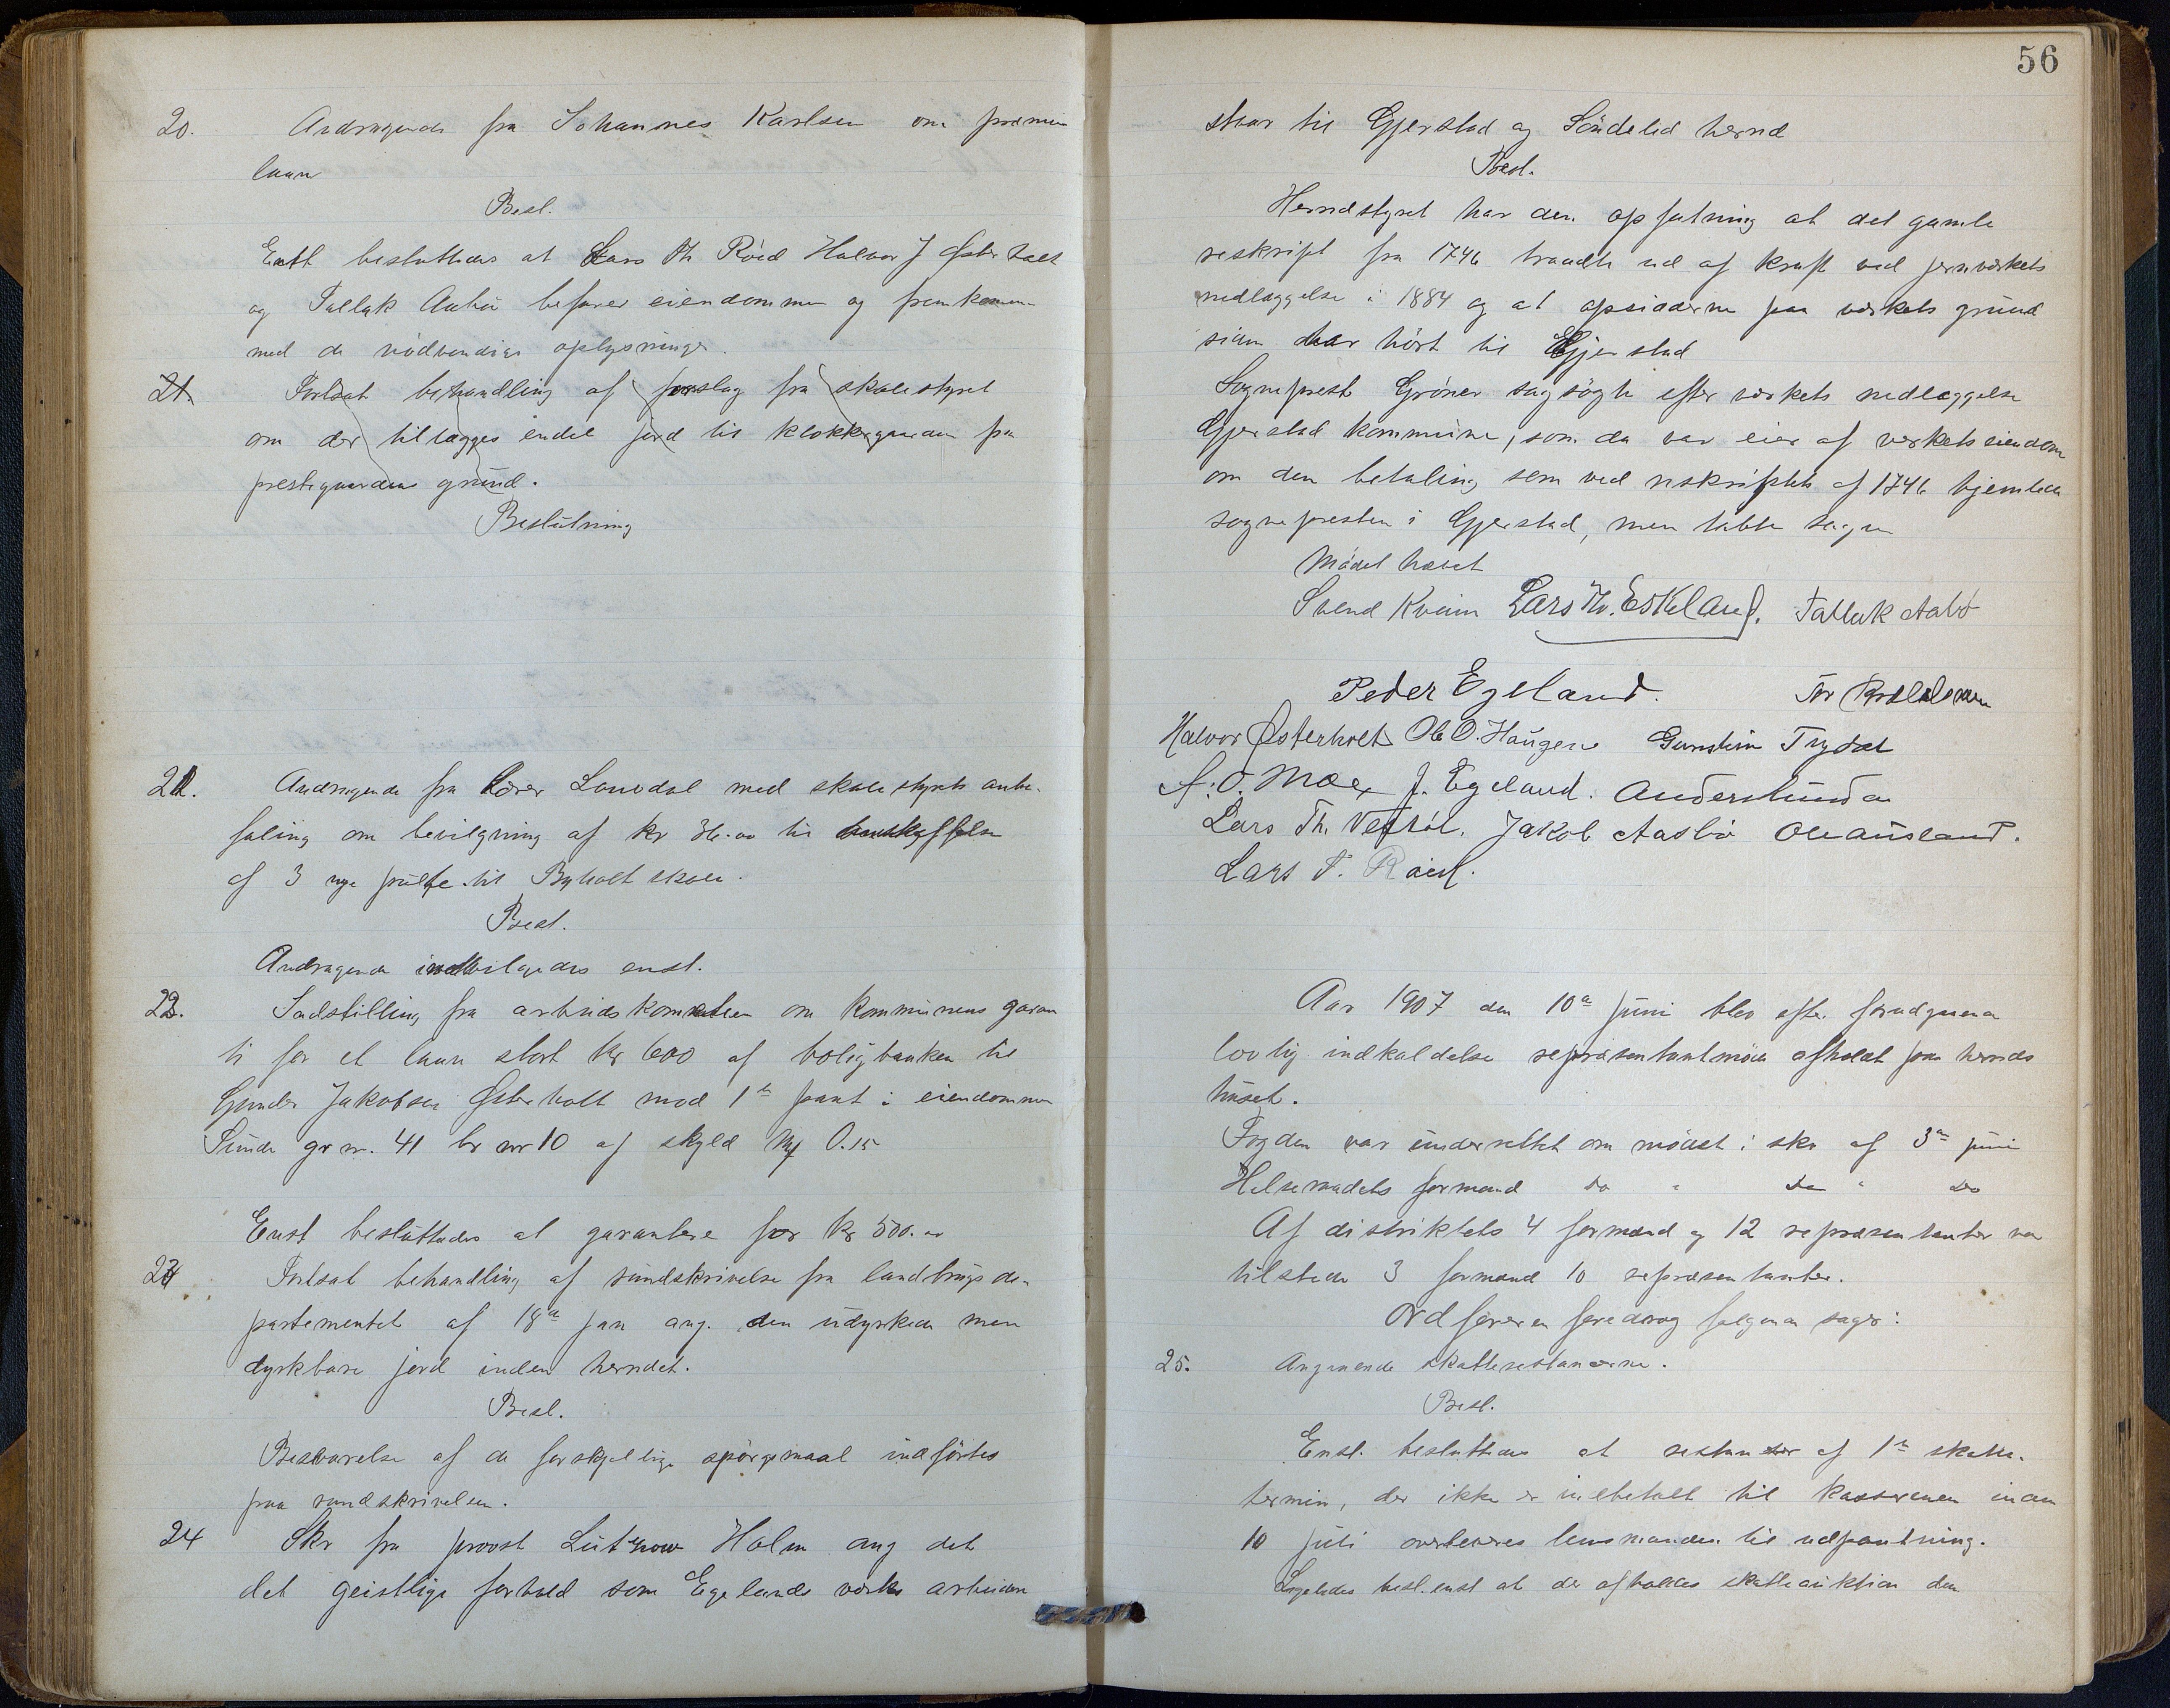 20. Andragende fra Johannes Karlsen om
laan
Besl.
Enst besluttedes at Lars Th Röed Halvor J Østerholt
og Tallak Aabø befarer eiendommen og fremkommer
med de nödvendige oplysninger.
21. Fortsat behandling af forslag fra skolestyret
om der tillægges endel jord til klokkergaarden fra
prestegaardens grund.
Beslutning
21. Andragende fra Lærer Lauvdal med skolestyrets anbe-
faling om bevilgning af kr 36.00 til anskaffelse
af 3 nye pulte til Byholt skole.
Besl.
Andragende indvilgedes enst.
22. Indstilling fra arbeidskomiteen om kommunens garan
ti for et laan stort kr 600 af boligbanken til
Gunder Jakobsen Østerholt mod 1ste pant i eiendommen
Sunde gr nr. 41 br nr 10 af skyld Mk 0.15
Enst besluttedes at garantere for kr 500.00
23 Fortsat behandling af rundskrivelse fra landbrugsde-
partementet af 18de jan ang. den udyrkede men
dyrkbare jord inden herredet.
Besl.
Besvarelse af de forskjellige spörgsmaal indförtes
paa rundskrivelsen.
24 Skr fra provst Lützow Holm ang det
det geistlige forhold som Egelands værks arbeidere
56
staar til Gjerstad og Söndeled herred
Besl.
Herredstyret har den opfatning at det gamle
reskript fra 1746 traadte ud af kraft ved jernværkets
nedlæggelse i 1884 og at opsidderne paa værkets grund
siden har hört til Gjerstad
Sogneprest Gröner sagsögte efter værkets nedlæggelse
Gjerstad kommune, som da var eier af verkets eiendom
om den betaling som ved reskriptet af 1746 hjemlede
sognepresten i Gjerstad, men tabte sagen
Mödet hævet
Svend Kveim Lars Th. Eskeland. Tallak Aabø
Peder Egeland. Tor
Halvor Østerholt Ole O. Haugene Gunstein Trydal
A. O. Moe J. Egeland. Anders Lunden
Lars Th. Vestöl. Jakob Aasbö Ole Ausland.
Lars T. Röed.
Aar 1907 den 10de juni blev efter forudgaaende
lovlig indkaldelse repræsentantmöde afholdt paa herreds
huset.
Fogden var underrettet om mödet i skr af 3die juni
Helseraadets formand do " do " do
Af distriktets 4 formænd og 12 repræsentanter var
tilstede 3 formænd 10 repræsentanter.
Ordföreren foredrog fölgende sager:
25. Angaaende skatterestancerne.
Besl.
Enst. besluttedes at restancer af 1ste skatte-
termin, der ikke er indbetalt til kassereren inden
10 juli overleveres lensmanden til udpantning.
Ligeledes besl. enst at der afholdes skatteauktion den